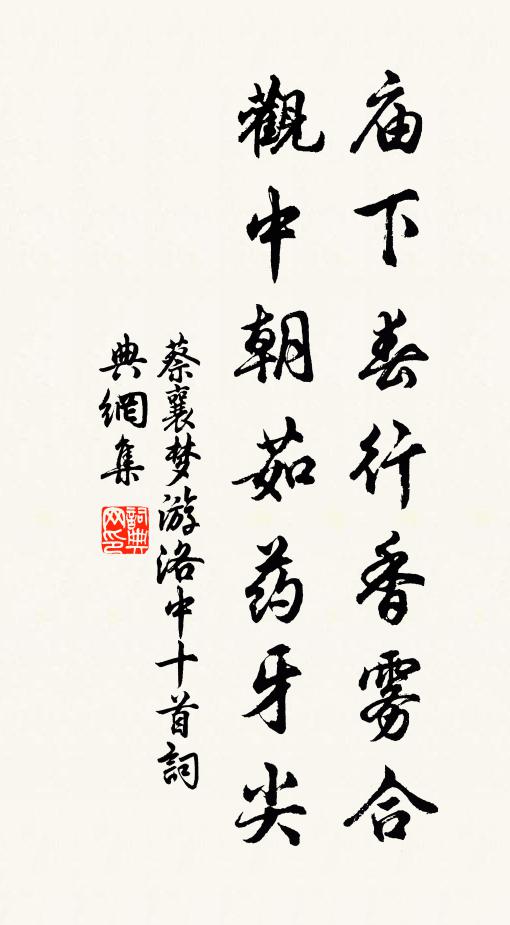 庙下春行香雾合
觀中朝茹药牙尖
蔡襄梦游洛中十首詞
典網集
詞典网印